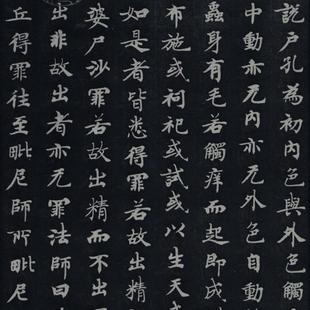 說戶孔為初內色與外色
中動亦无內亦无外色自動
蟲身有毛若觸痒而起即成
布施或祠祀或試或以生天
如是者皆悉得罪若故出精
婆尸沙罪若故出精而不出
出非故出者亦无罪法師曰
丘得罪往至毗尼師所毗尼